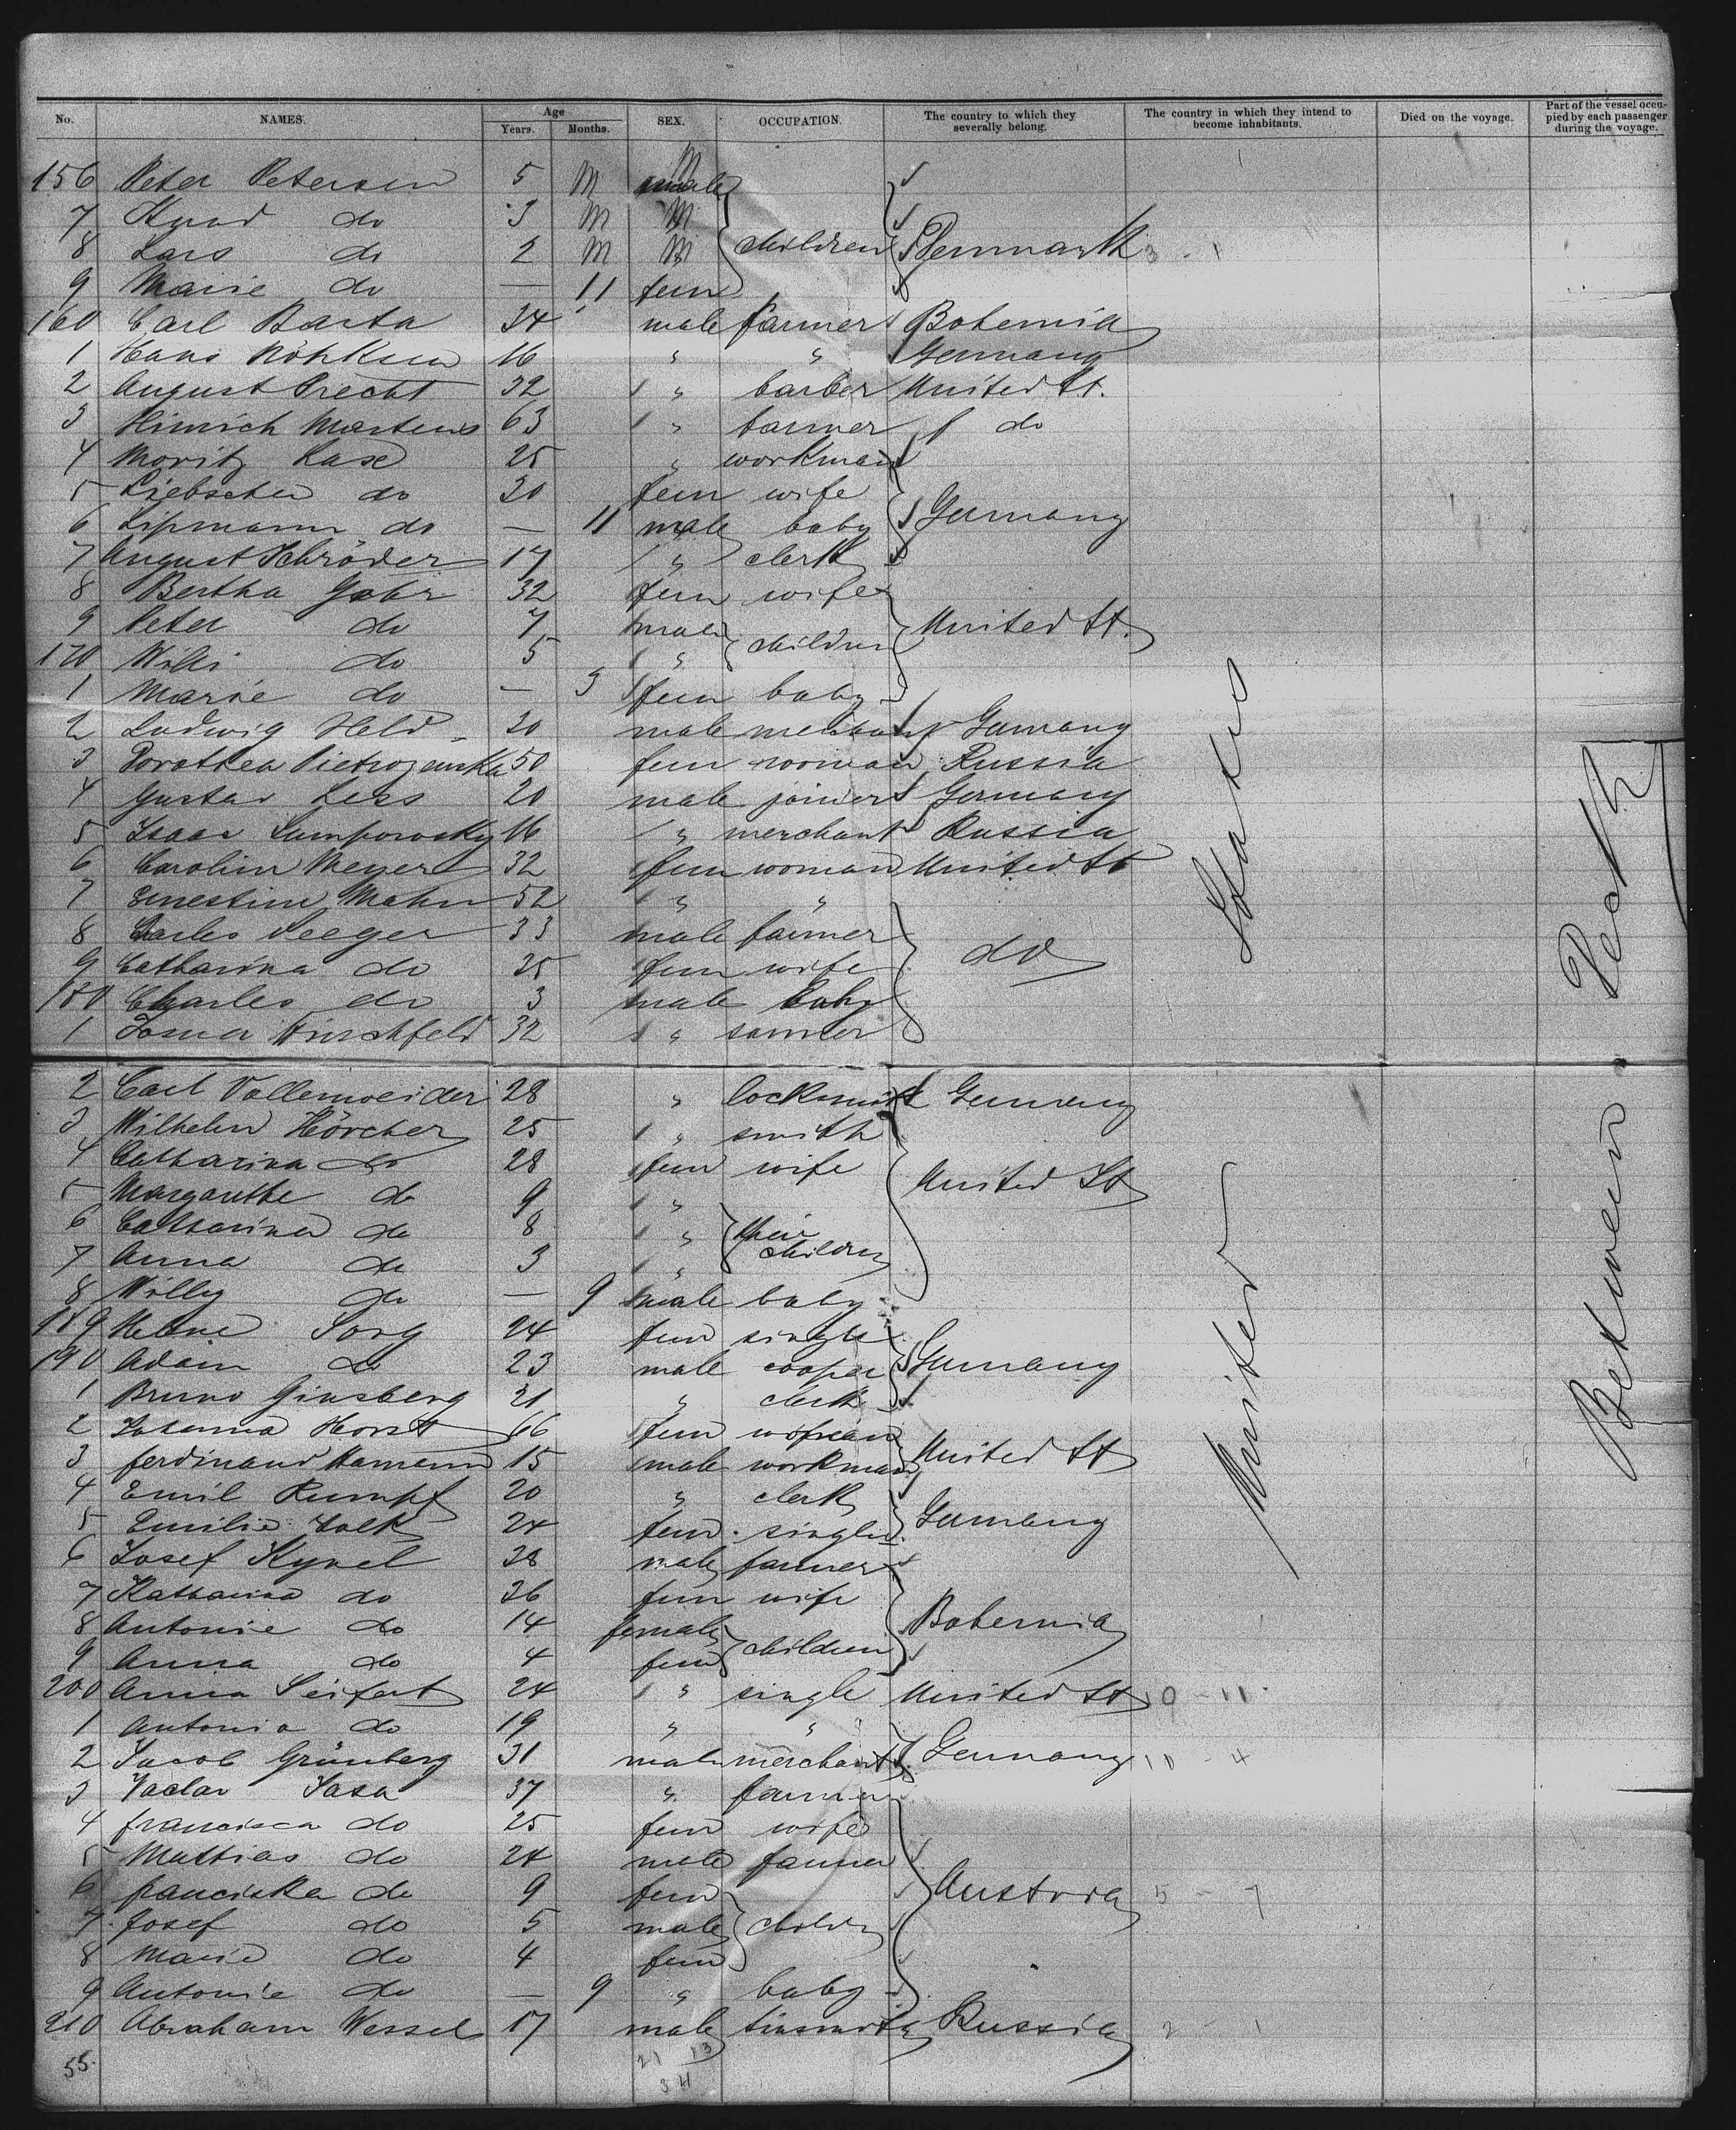 No. NAMES. Age Years. Months. SEX. OCCUPATION. The country to which they severally belong. The country in which they intend to become inhabitants. Died on the voyage. Part of the vessel occupied by each passenger during the voyage.
156 Peter Petersen 5 M male
7 Knud do 3 M M
8 Lars do 2 M M children Denmark
9 Marie do — 11 fem
160 Carl Barta 34 male farmer Bohemia
1 Hans 16 " " Germany
2 August Precht 32 " barber United St.
3 Hinrich Martens 63 " farmer do
4 Moritz Kase 25 " workman
5 do 30 fem wife
6 Lipmann do — 11 male baby Germany
7 August Schröder 17 " clerk
8 Bertha Gohr 32 fem wife
9 Peter do 7 male children United St.
170 Willi do 5 "
1 Marie do — 3 fem baby
2 Ludwig Held 20 male merchant Germany
3 Dorothea 50 fem woman Russia
4 Gustav Less 20 male joiner Germany
5 Isaac 16 " merchant Russia
6 Carolin Meyer 32 fem woman United St
7 Ernestine Mahn 52 " "
8 Charles Seeger 33 male farmer
9 Catharina do 25 fem wife do
180 Charles do 3 male baby
1 Hirschfeld 32 "
2 Carl Vollenweider 28 " locksmith Germany
3 Wilhelm Hörcher 25 " smith
4 Catharina do 28 fem wife United St
5 Margarethe do 9 "
6 Catharina do 8 " their children
7 Anna do 3 "
8 Willy do — 9 male baby
189 Helene Sorg 24 fem single
190 Adam do 23 male cooper Germany
1 Bruno Ginsberg 21 " clerk
2 Johanna Horst 66 fem woman
3 Ferdinand Hamann 15 male workman United St
4 Emil Rumpf 20 " clerk
5 Emilie 24 fem single Germany
6 Josef Kynel 38 male farmer
7 Katharina do 36 fem wife
8 Antonie do 14 female children Bohemia
9 Anna do 4 fem
200 Anna Seifert 24 " single United St 0 - 11
1 Antonia do 19 " "
2 Jacob Grünberg 31 male merchant Germany 10 - 4
3 37 " farmer
4 Francisca do 25 fem wife
5 Mathias do 24 male farmer
6 Franciska do 9 fem Austria 5 - 7
7 Josef do 5 male
8 Marie do 4 fem
9 Antonie do — 9 " baby
210 Abraham Wessel 17 male tinsmith Russia 2 - 1
55.
21 13
34
United States
Between Deck